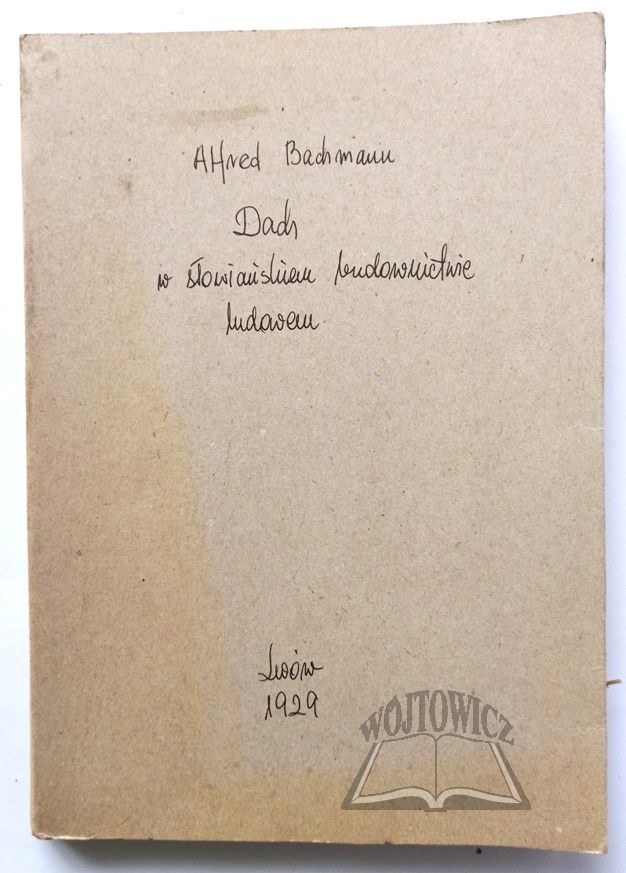 Alfred Bachmann
Dach
w słowiańskiem budownictwie
ludowem
Lwów
1929
WÓJTOWICZ